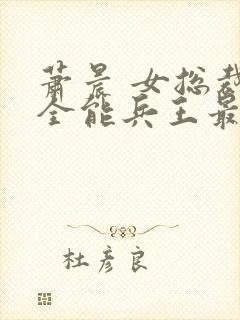 萧晨 女总裁
全能兵王最
杜彦良